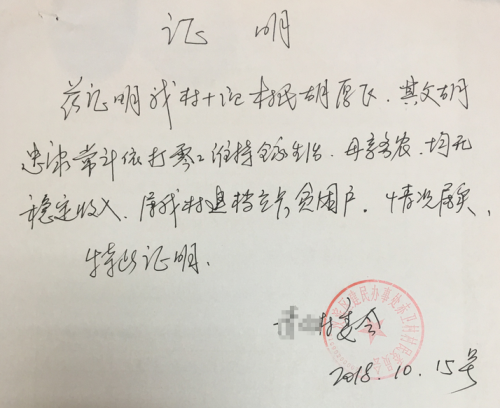 证 明
兹证明我村十组村民胡厚飞，其父胡
忠 常年依打零工维持全家生活，母亲务农，均无
稳定收入，属我村建档立卡贫困户，情况属实、
特此证明。
村委会
2018.10.15号